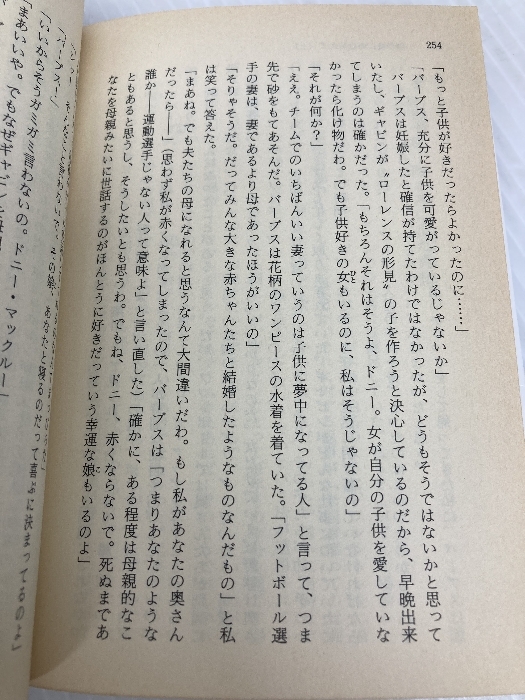 254
「もっと子供が好きだったらよかったのに……」
「バーブス、充分に子供を可愛がっているじゃないか」
バーブスは妊娠したと確信が持てたわけではなかったが、どうもそうではないかと思って
いたし、ギャビンが〝ローレンスの形見〟の子を作ろうと決心しているのだから、早晩出来
てしまうのは確かだった。「もちろんそれはそうよ、ドニー。女が自分の子供を愛していな
かったら化け物だわ。でも子供好きの女もいるのに、私はそうじゃないの」
「それが何か?」
「ええ。チームでのいちばんいい妻っていうのは子供に夢中になってる人」と言って、つま
先で砂をもてあそんだ。バーブスは花柄のワンピースの水着を着ていた。「フットボール選
手の妻は、妻であるより母であったほうがいいの」
「そりゃそうだ。だってみんな大きな赤ちゃんたちと結婚したようなものなんだもの」と私
は笑って答えた。
「まあね。でも夫たちの母になれると思うなんて大間違いだわ。もし私があなたの奥さん
だったら――」(思わず私が赤くなってしまったので、バーブスは「つまりあなたのような
誰か――運動選手じゃない人って意味よ」と言い直した)「確かに、ある程度は母親的なこ
ともあると思うし、そうしたいとも思うわ。でもね、ドニー、赤くならないで。死ぬまであ
なたを母親みたいに世話するのがほんとうに好きだっていう幸運な娘もいるのよ」
あなたと寝るのだって喜ぶに決まってるのよ」
「バーブス!」
「いいからそうガミガミ言わないの。ドニー・マックルー」
「まあいいや。でもなぜギャビンを